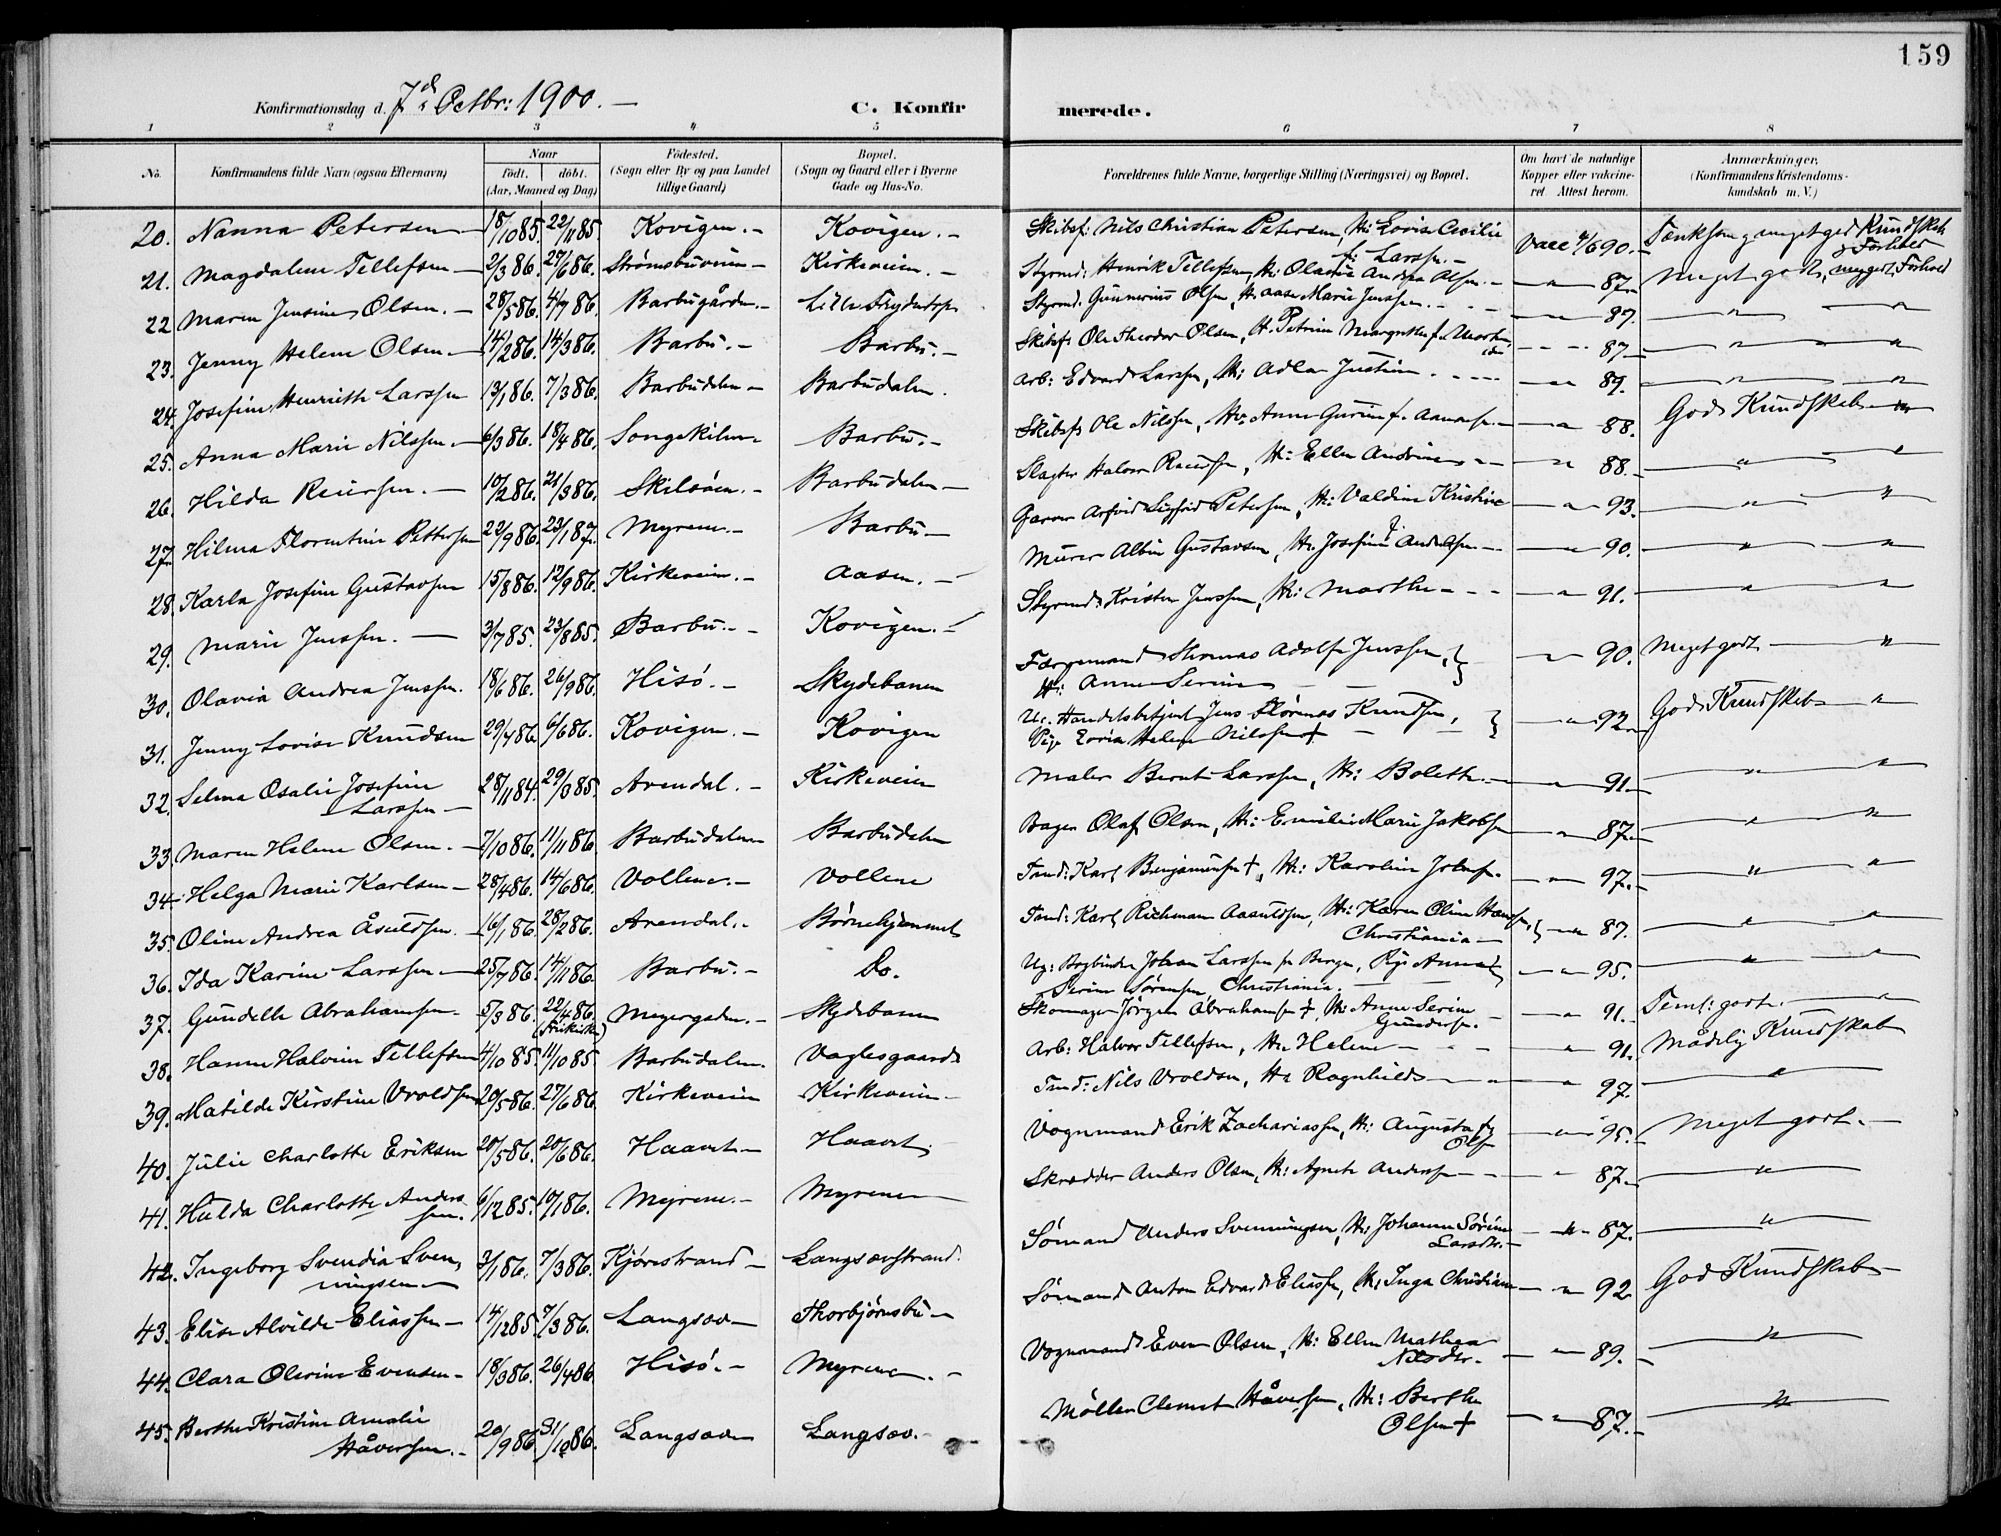 159
Konfirmationsdag d. 7d Octbr: 1900. —
C. Konfir
merede.
1 2 3 4 5 6 7 8
No.
Konfirmandens fulde Navn (ogsaa Efternavn)
Naar
født. døbt.
(Aar, Maaned og Dag)
Fødested.
(Sogn eller By og paa Landet
tillige Gaard)
Bopæl.
(Sogn og Gaard eller i Byerne
Gade og Hus-No.
Forældrenes fulde Navne, borgerlige Stilling (Næringsvei) og Bopæl.
Om havt de naturlige
Kopper eller vakcine-
ret Attest herom.
Anmærkninger,
(Konfirmandens Kristendoms-
kundskab m. V.)
20. Nanna Petersen 18/10 85. 22/11 85. Kovigen. — Kovigen. — Skibsf: Nils Christian Petersen, H: Lovise Cecilie Vacc 4/6 90. meget god Kundskab
f. Larsen. — & Forhold
21. Magdalene Tellefsen 2/3 86. 27/6 86. Strømsbuveien Kirkeveien. — Styrmd: Henrik Tellefsen, H: Olava Andrea Olsen — " 87. Meget godt, Forhold
22 Maren Jensine Olsen. — 28/5 86. 4/7 86. Barbugården Lille Styrmd. Gunnerius Olsen, H: Aase Marie Jensen — " 87. "
23. Jenny Helene Olsen 14/2 86. 14/3 86. Barbu. — Barbu. — Skibsf: Ole Theodor Olsen, H. Petrine — " 87. "
24. Josefine Henriette Larssen 13/1 86. 7/3 86. Barbudalen — Barbudalen. Arb: Edvard Larssen, H: Adla Justine — " 89. "
25. Anna Marie Nilssen. — 6/3 86. 18/4 86. Songekilen Barbu. — Skibsf: Ole Nilssen, H: Anne Gurine f. — " 88. God Kundskab "
26. Hilda — 10/2 86. 21/3 86. Skilsøen. — Barbudalen — Slagter Halvor H: Ellen Andrine — " 88. "
27. Hilma Florentine Pettersen 22/9 86. 23/1 87. Myrene. — Barbu — Garver Arfvid Sigfrid Petersen, H: Valdine Kristine — " 93. "
28. Karla Josefine Gustavsen 15/8 86. 12/9 86. Kirkeveien. — Aasen. — Murer Albin Gustavsen, H: Josefine f. Andersen — " 90. "
29. Marie Jenssen. — 3/7 85. 23/8 85. Barbu. — Kovigen. — Styrmd: Kristen Jenssen, H: Marthe — " 91. "
30. Olavia Andrea Jenssen. 18/6 86. 26/9 86. Hisø. — Skydebanen Færgemand Thomas Adolf Jenssen, — " 90. Meget godt "
H: Anne Serine
31. Jenny Lovise Knudsen 29/4 86 6/6 86. Kovigen. — Kovigen Handelsbetjent Jens Knudsen, — " 92. God Kundskab "
Pige Lovise Helene Nilssen †
32. Selma Osalie Josefine 28/11 84. 29/3 85. Arendal. — Kirkeveien Maler Bernt Larssen, H: Bolette — " 91. "
Larssen —
33. Maren Helene Olsen. — 7/10 86. 11/11 86. Barbudalen Barbudalen Bager Olaf Olsen, H: Emilie Marie Jakobsen — " 87. "
34. Helga Marie Karlsen — 28/4 86. 14/6 86. Vollene. — Vollene Tømd: Karl Benjaminsen †, H: Karoline — " 97. "
35. Oline Andrea Åsuldsen. 16/1 86. 28/2 86. Arendal. — Børnehjemmet Tømd: Karl Richman Aasuldsen, H: Karen Oline Hansen, — " 87. "
Christiania —
36. Ida Karine Larssen — 25/7 86. 14/11 86. Barbu. — Do. Ug: Bogbinder Johan Larssen fr Bergen, Pige Anna — " 95. "
Serine Sørensen, Christiania.
37. Gundelle Abrahamsen 5/3 86. 22/4 86. Skydebanen Skomager Jørgen Abrahamsen †, H: Anne Serine — " 91. Teml: godt. "
(Frikirken) Gundersen.
38. Hanne Halvine Tellefsen 4/10 85. 11/10 85. Barbudalen. Vaglesgaarden Arb: Halvor Tellefsen, H: Helene — " 91. Mådelig Kundskab
39. Matilde Kirstine Vroldsen 29/5 86. 27/6 86. Kirkeveien Kirkeveien — Tmd: Nils Vroldsen, H: Ragnhild — " 97. "
40. Julie Charlotte Eriksen 20/5 86. 20/6 86. Haavet — Haavet. Vognmand Erik Zachariassen, H: Augusta f. — " 95. Meget godt. —
Olsen
41. Hulda Charlotte Anders 6/12 85. 10/1 86. Myrene. — Myrene — Skrædder Anders Olsen, H: Agnete Andersen — " 87. "
sen.
42. Ingeborg Svendia Sven 3/1 86. 7/3 86. Kjørestrand — Langsævstrand. Sømand Anders Svenningsen, H: Johanne Sørine — " 87. "
ningsen — Larsdtr. —
43. Elise Alvilde Eliassen — 14/12 85. 7/3 86. Langsæv — Thorbjørnsbu — Sømand Anton Edvard Eliassen, H: Inga Christiane — " 92 God Kundskab —
44. Clara Olerine Evensen — 18/3 86. 26/4 86 Hisø. — Myrene. — Vognmand Even Olsen, H: Ellen Mathea — " 89. — "
Nilsdtr. —
45. Berthe Kristine Amalie 20/9 86. 31/10 86. Langsæv Langsæv. — Møller Clemet Håversen, H: Berthe — " 87. — "
Håversen. — Olsen †